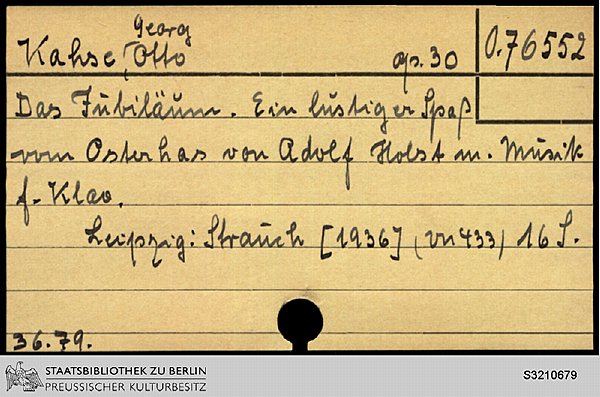 Georg
Kahse, Otto op. 30 O.76552
Das Jubiläum. Ein lustiger Spaß
vom Osterhas von Adolf Holst m. Musik
f. Klav.
Leipzig: Strauch [1936] (vn 433) 16 S.
36.79.
STAATSBIBLIOTHEK ZU BERLIN
PREUSSISCHER KULTURBESITZ
S3210679